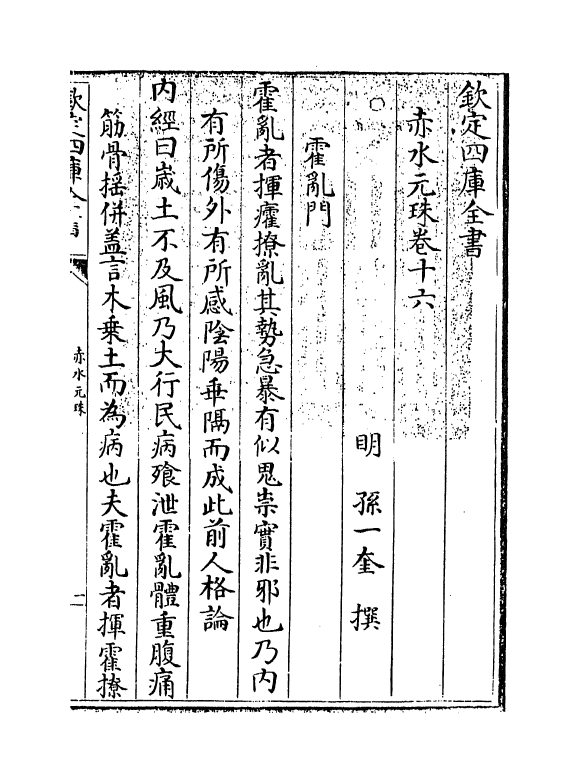 欽定四庫全書
赤水元珠卷十六
明 孫一奎 撰
霍亂門
霍亂者揮癨撩亂其勢急暴有似鬼祟實非邪也乃内
有所傷外有所感陰陽乖隔而成此前人格論
内經曰嵗土不及風乃大行民病飱泄霍亂體重腹痛
筋骨揺併盖言木乗土而為病也夫霍亂者揮霍撩
欽定四庫全書
赤水元珠